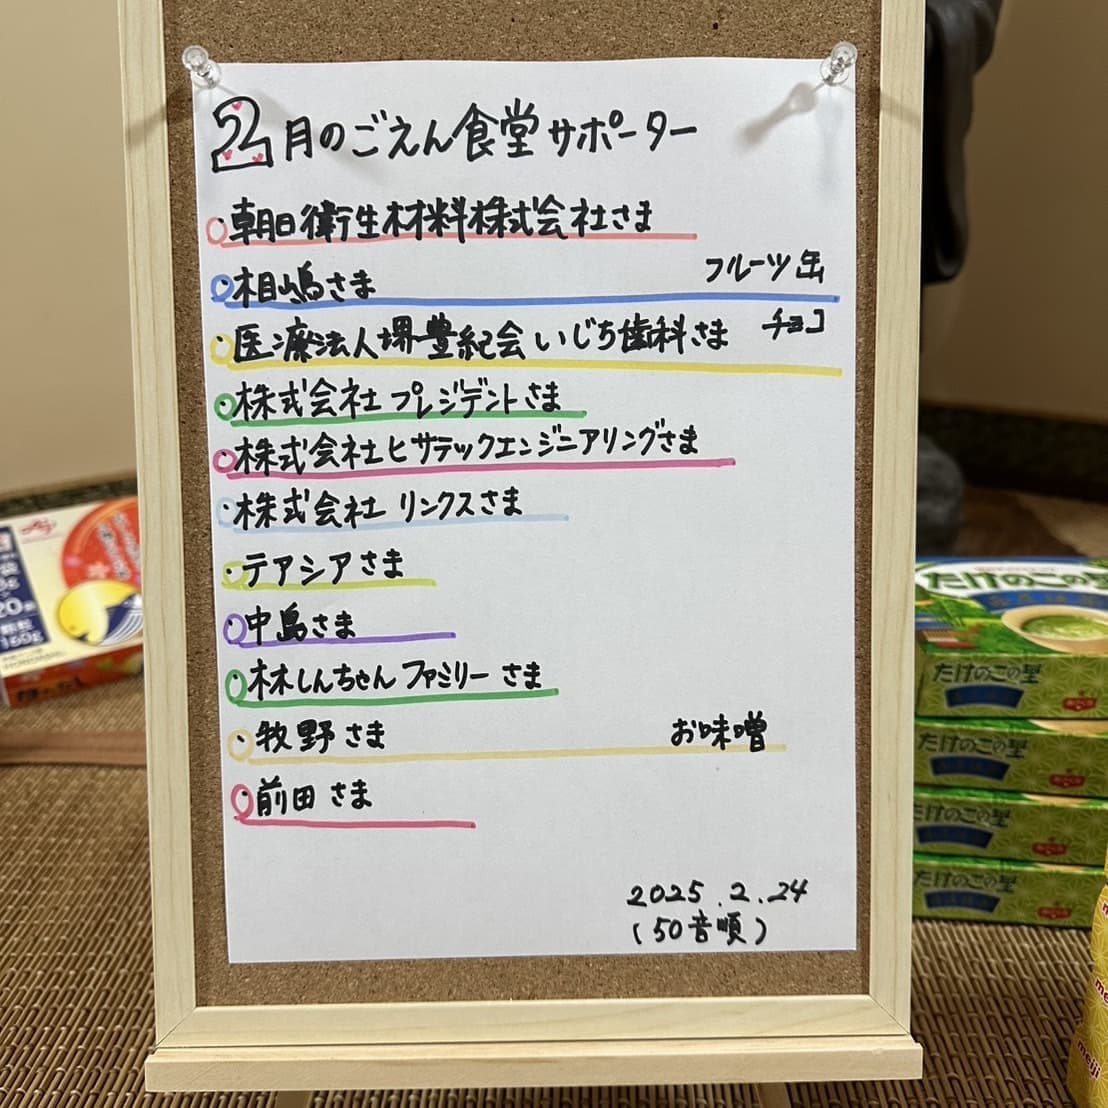 2月のごえん食堂サポーター
・朝日衛生材料株式会社さま
・相嶋さま フルーツ缶
・医療法人堺豊紀会いじち歯科さま チョコ
・株式会社プレジデントさま
・株式会社ヒサテックエンジニアリングさま
・株式会社リンクスさま
・テアシアさま
・中島さま
・林しんちゃんファミリーさま
・牧野さま お味噌
・前田さま
2025.2.24
(50音順)
たけのこの里
たけのこの里
たけのこの里
たけのこの里
たけのこの里
meiji